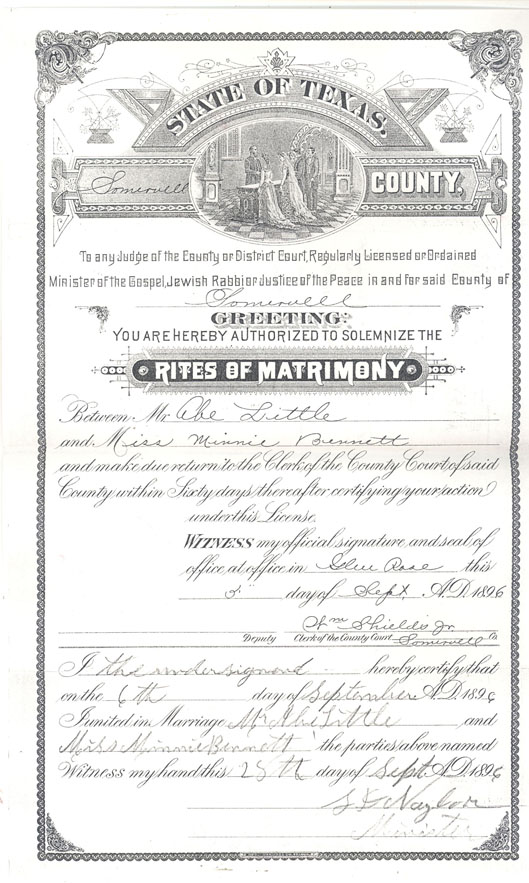 STATE OF TEXAS.
Somervell COUNTY,
To any Judge of the County or District Court, Regularly Licensed or Ordained
Minister of the Gospel, Jewish Rabbi or Justice of the Peace in and for said County of
Somervell
GREETING:
YOU ARE HEREBY AUTHORIZED TO SOLEMNIZE THE
RITES OF MATRIMONY
Between Mr. Abe Little
and Miss Minnie Bennett
and make due return to the Clerk of the County Court of said
County within Sixty days thereafter certifying your action
under this License.
WITNESS my official signature and seal of
office at office in Glen Rose this
5" day of Sept. A.D. 1896
Wm Shields Jr.
Deputy Clerk of the County Court Somervell Co
I the undersigned hereby certify that
on the 6th day of September A.D. 1896
I united in Marriage Mr Abe Little and
Miss Minnie Bennett the parties above named
Witness my hand this 28th day of Sept. A.D. 1896
Naylor
Minister